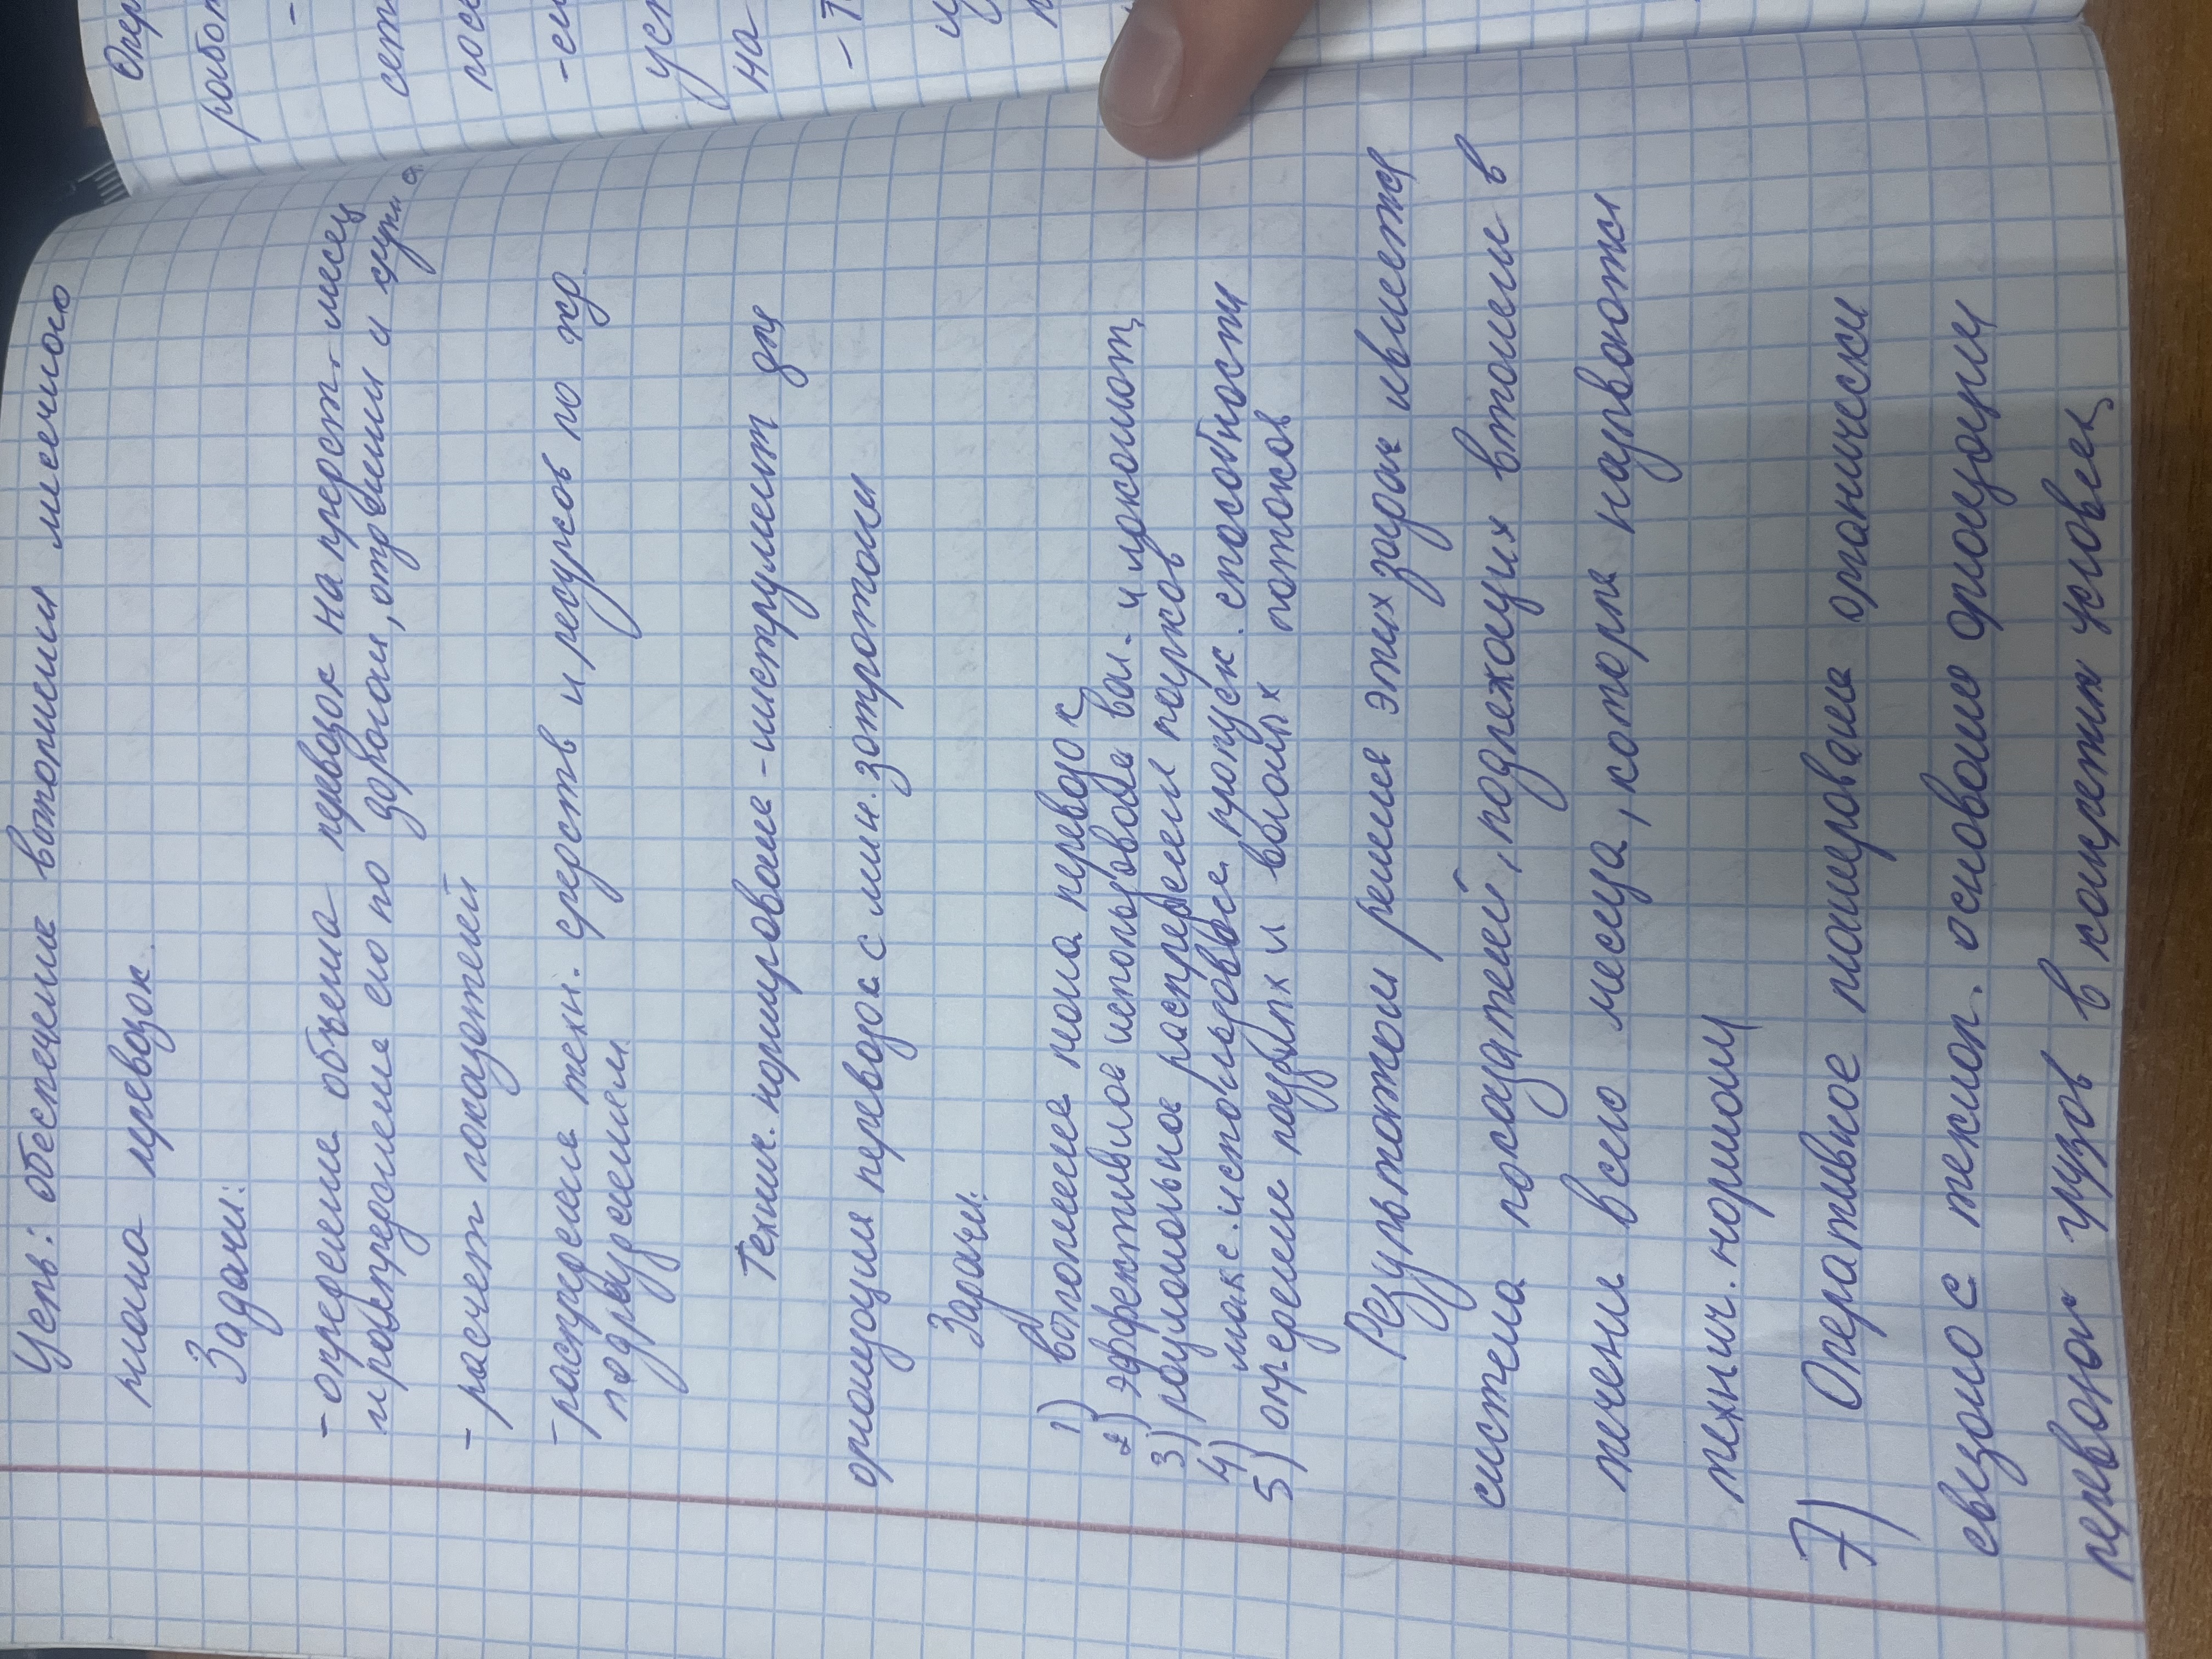 Цель: обеспечение выполнения месячного
плана перевозок.
Задачи:
- определение объема перевозок на предст. месяц
и распределение его по дорогам, отр
- расчет показателей
- распределение техн. средств и ресурсов по жд.
подразделениям.
Технич. нормирование - инструмент для
организации перевозок с мин. затратами
Задачи:
1) выполнение плана перевозок
2) эффективное использование ваг. и локомот,
3) рациональное распределение парков
4) макс. использование пропуск. способности
5) определение поездных и вагонных потоков
Результатом решения этих задач является
система показателей, подлежащих выполнен в
течении всего месяца, которые называются
технич. нормами
7) Оперативное планирование органически
связано с технол. основами организации
перевозок грузов в конкретн условиях
Опер
работ
-
сет
пос
- ем
уст
на
- т